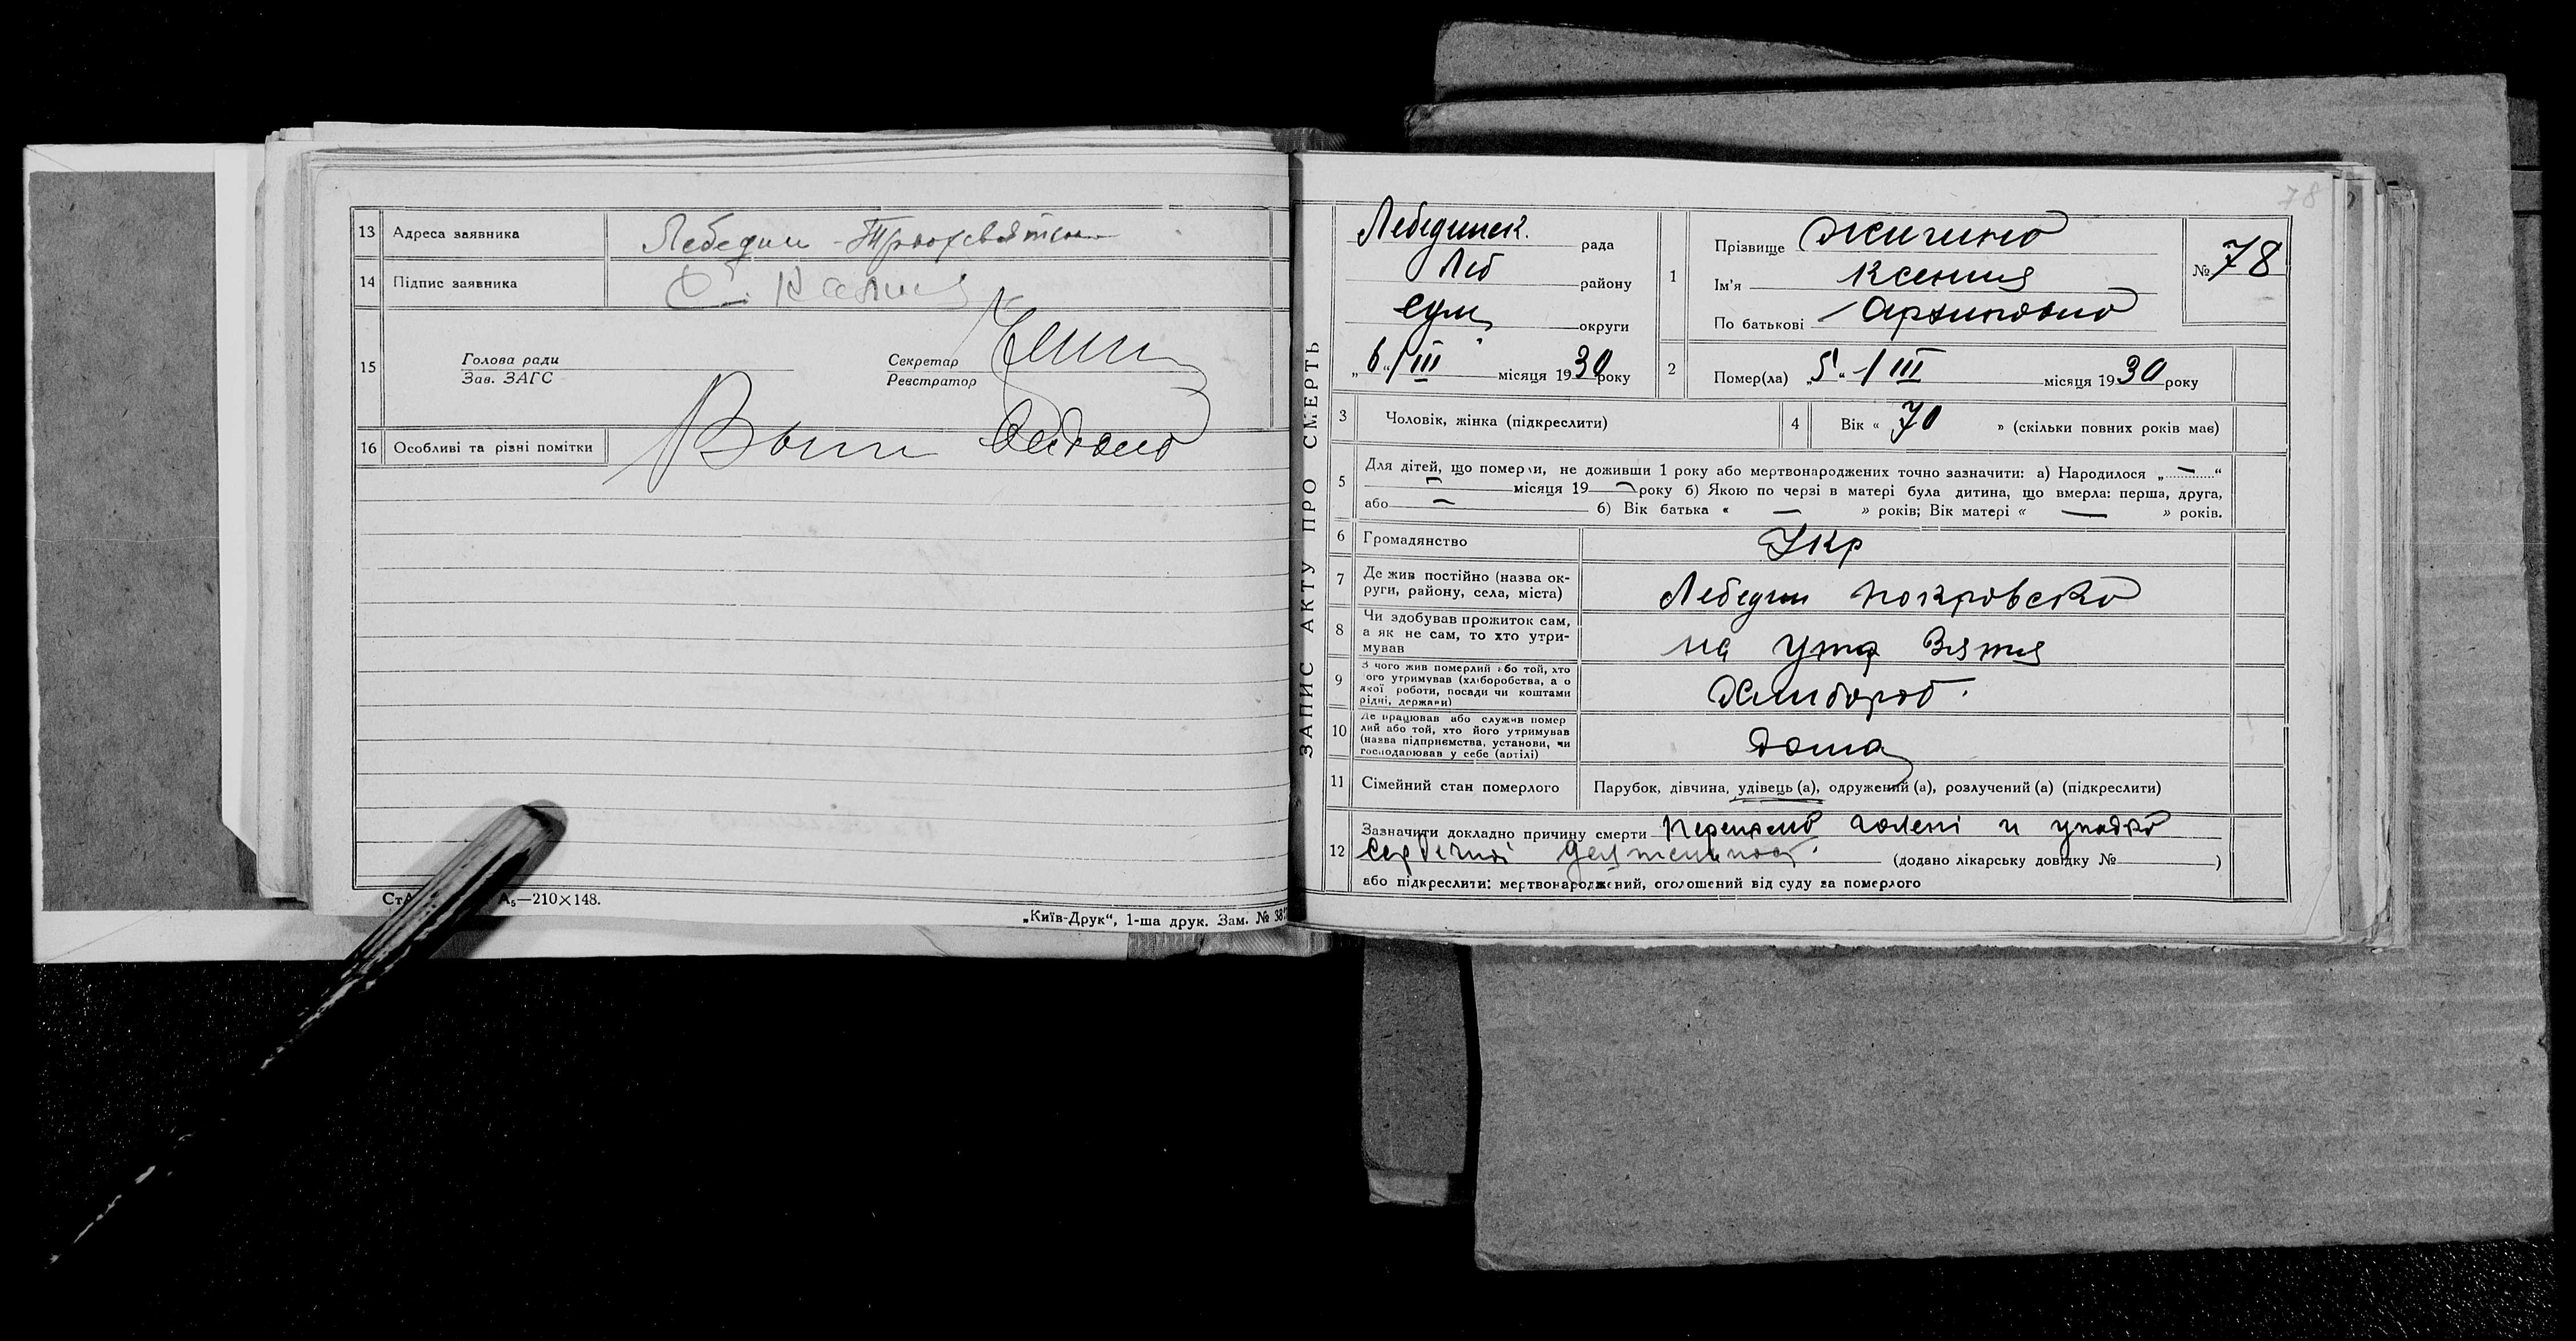 13 Адреса заявника Лебедин - Трьохсвятск
14 Підпис заявника
15 Голова ради
Зав. ЗАГС
Секретар
Реєстратор
16 Особливі та різні помітки
А₅—210×148.
„Київ-Друк“, 1-ша друк. Зам. №
78
ЗАПИС АКТУ ПРО СМЕРТЬ
Лебединск. рада
Леб району
Сум округи
„6“/III місяця 1930 року
1 Прізвище
Ім'я Ксения
По батькові Архиповна
№ 78
2 Помер(ла) „5“ /III місяця 1930 року
3 Чоловік, жінка (підкреслити)
4 Вік « 70 » (скільки повних років має)
5 Для дітей, що померли, не доживши 1 року або мертвонароджених точно зазначити: а) Народилося „ — “
— місяця 19 — року б) Якою по черзі в матері була дитина, що вмерла: перша, друга,
або — б) Вік батька « — » років; Вік матері « — » років.
6 Громадянство Укр
7 Де жив постійно (назва ок-
руги, району, села, міста) Лебедин Покровска
8 Чи здобував прожиток сам,
а як не сам, то хто утри-
мував на утр Зятя
9 З чого жив померлий або той, хто
його утримував (хліборобства, а о
якої роботи, посади чи коштами
рідні, держави) Хлибороб.
10 Де працював або служив помер
лий або той, хто його утримував
(назва підприємства, установи, чи
господарював у себе (артілі) Дома
11 Сімейний стан померлого Парубок, дівчина, удівець (а), одружений (а), розлучений (а) (підкреслити)
12 Зазначити докладно причину смерти Перелом голені и упадко
сердечной деятельност. (додано лікарську довідку № )
або підкреслити: мертвонароджений, оголошений від суду за померлого